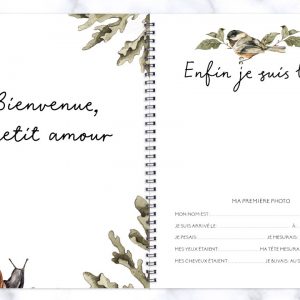 Bienvenue,
petit amour
Enfin je suis l
MA PREMIÈRE PHOTO
MON NOM EST:
JE SUIS ARRIVÉ LE: À:
JE PESAIS: JE MESURAIS:
MES YEUX ÉTAIENT: MA TÊTE MESURA
MES CHEVEUX ÉTAIENT: JE BUVAIS: AU S